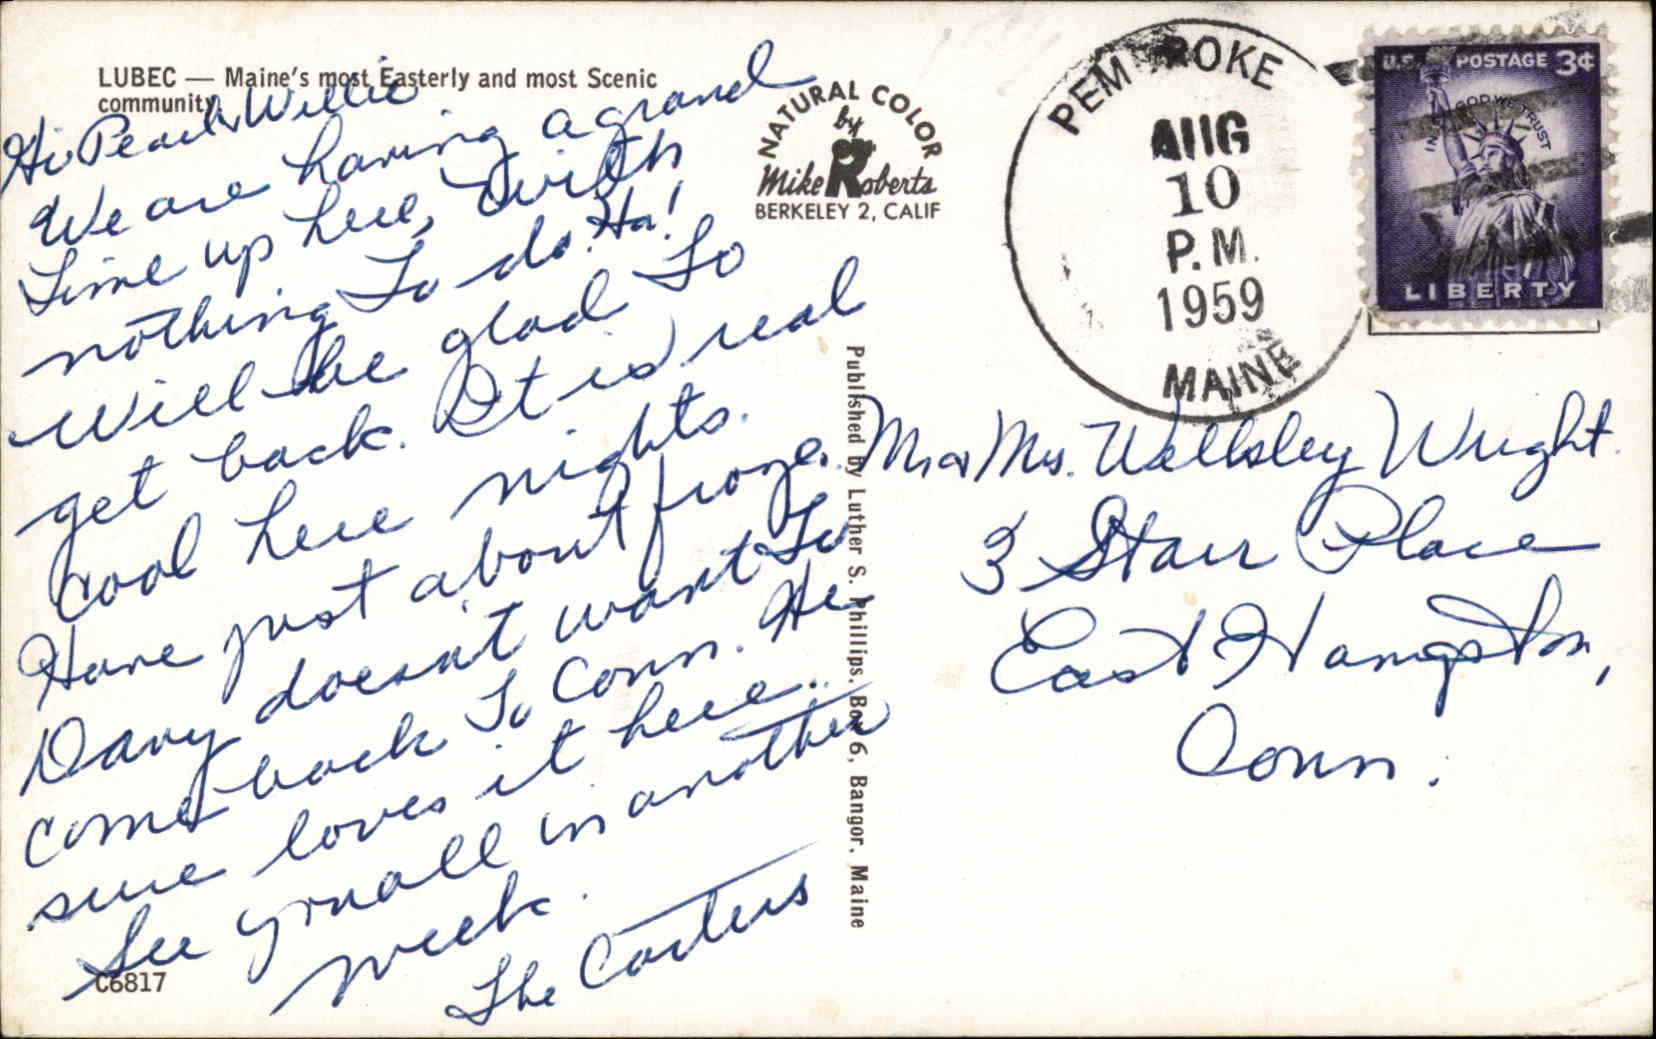 LUBEC — Maine's most Easterly and most Scenic
community.
Hi Pearl & Willie
We are having a grand
time up here, with
nothing to do. Ha!
Will be glad to
get back. It is real
cool here nights.
Have just about froze.
Davy doesn't want to
come back to Conn. He
sure loves it here.
See you all in another
week.
The Carters
C6817
NATURAL COLOR
by
Mike Roberts
BERKELEY 2, CALIF
Published by Luther S. Phillips, Box 6, Bangor, Maine
PEMBROKE
AUG
10
P.M.
1959
MAINE
U.S. POSTAGE 3¢
IN GOD WE TRUST
LIBERTY
Mr & Mrs. Wellsley Wright.
3 Starr Place
East Hampton,
Conn.